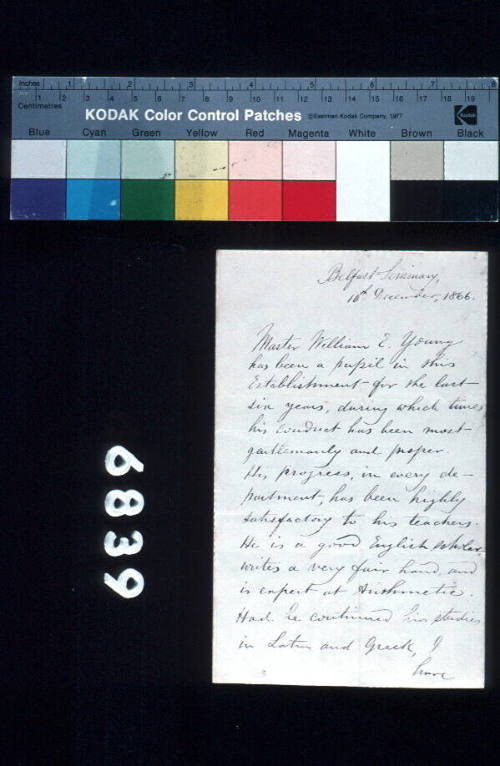 Inches 1 2 3 4 5 6 7 8
Centimetres 1 2 3 4 5 6 7 8 9 10 11 12 13 14 15 16 17 18 19
KODAK Color Control Patches ©Eastman Kodak Company, 1977 Kodak
Blue Cyan Green Yellow Red Magenta White Brown Black
6839
Belfast Seminary,
16th December, 1866.
Master William E. Young
has been a pupil in this
Establishment for the last
six years, during which time
his conduct has been most
gentlemanly and proper.
His progress, in every de-
partment, has been highly
satisfactory to his teachers.
He is a good English scholar,
writes a very fair hand, and
is expert at Arithmetic.
Had he continued his studies
in Latin and Greek, I
have